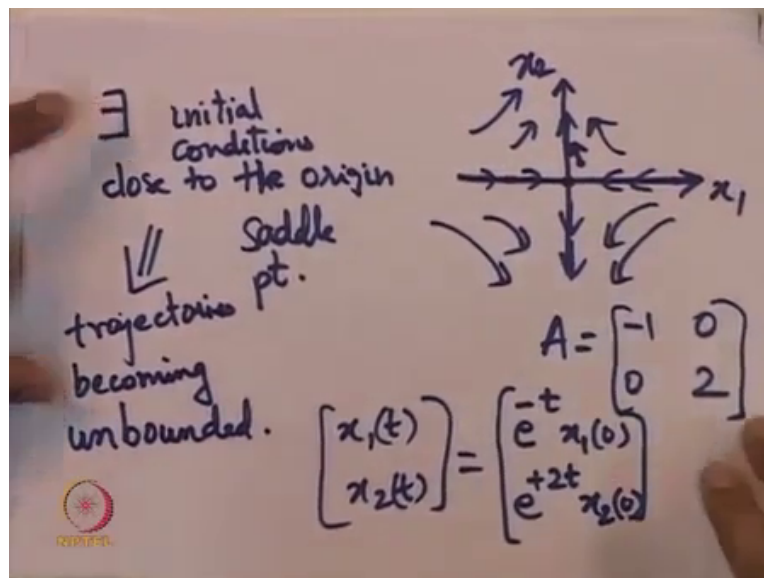 ∃ initial
conditions
close to the origin
⇓
saddle
pt.
trajectories
becoming
unbounded.
x₂
x₁
A = [-1 0
0 2]
[x₁(t)
x₂(t)] = [e^{-t} x₁(0)
e^{+2t} x₂(0)]
NPTEL